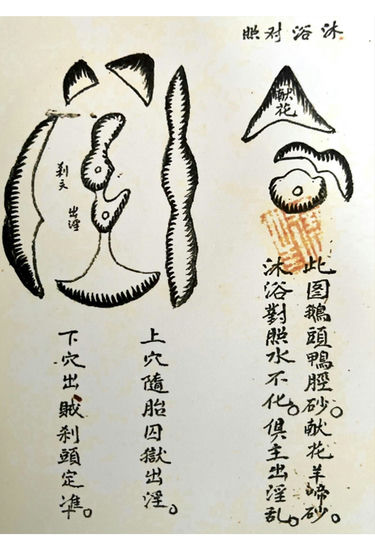 沐浴对照
献花
此图鵝頭鴨脛砂。献花羊蹄砂。
沐浴對照水不化。俱主出淫乱。
出淫
上穴隨胎囚獄出淫。
下穴出賊刹頭定准。